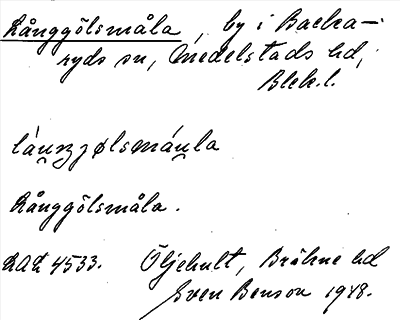 Långgölsmåla, by i Backa-
ryds sn, Medelstads hd,
Blek.l.
láu̯ŋjølsmáu̯la
Långgölsmåla.
RAÄ 4533. Öljehult, Bräkne hd
Sven Benson 1948.